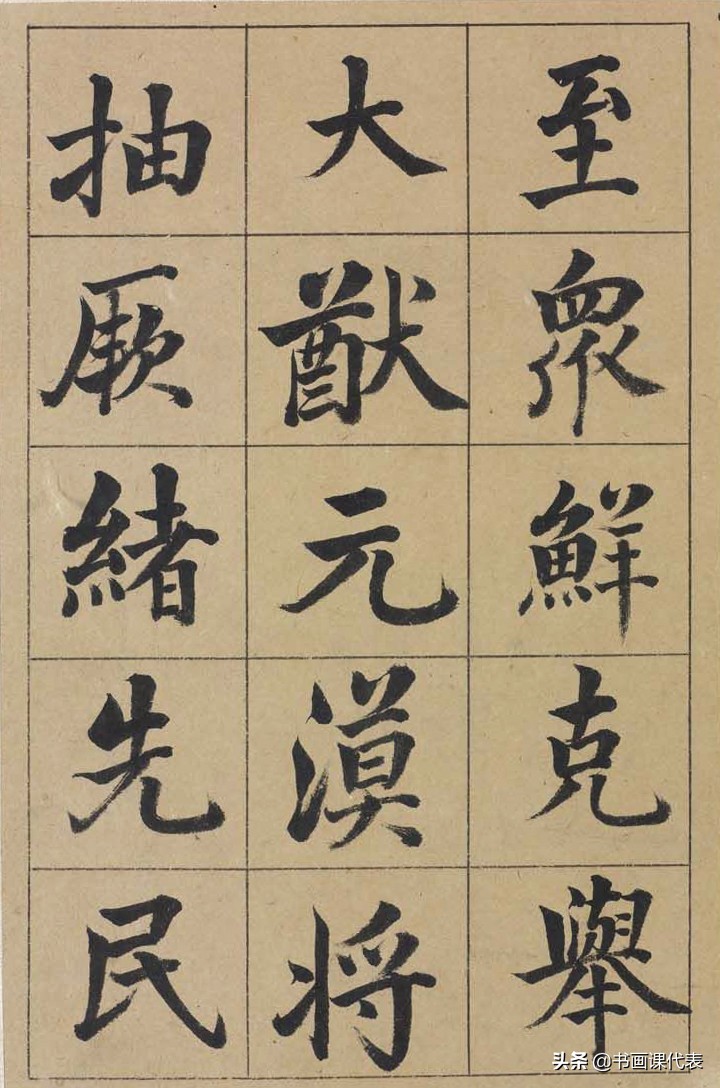 至眾鮮克舉
大猷元漠将
抽厥緒先民
头条 @书画课代表